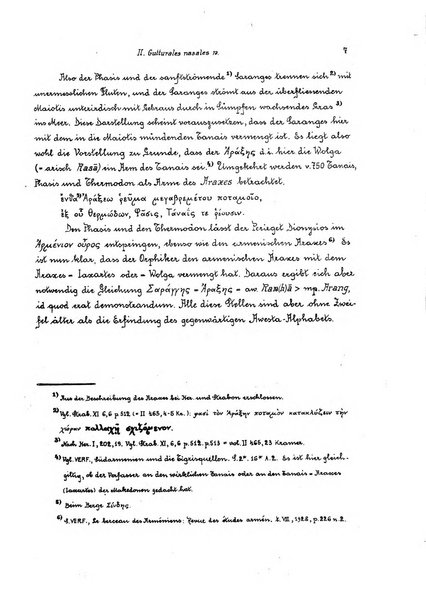 II. Gutturales nasales ṇ. 7
Also der Phasis und der sanftströmende¹⁾ Saranges trennen sich²⁾ mit
unermesslichen Fluten, und der Saranges strömt aus der überfliessenden
Maiotis unterirdisch mit Gebraus durch in Sümpfen wachsendes Gras³⁾
ins Meer. Diese Darstellung scheint vorauszusetzen, dass der Saranges hier
mit dem in die Maiotis mündenden Tanais vermengt ist. Es liegt also
wohl die Vorstellung zu Grunde, dass der Ἀράξης d.i. hier die Wolga
(= arisch Rasā) ein Arm des Tanais sei.⁴⁾ Umgekehrt werden v. 750 Tanais,
Phasis und Thermodon als Arme des Araxes betrachtet.
ἔνθα⁵⁾ Ἀράξεω ῥεῦμα μεγαβρεμέτου ποταμοῖο,
ἐξ οὗ Θερμώδων, Φᾶσις, Τάναΐς τε ῥέουσιν.
Den Phasis und den Thermodon lässt der Perieget Dionysios im
Ἀρμένιον οὖρος entspringen, ebenso wie den armenischen Araxes⁶⁾ Es
ist nun klar, dass der Orphiker den armenischen Araxes mit dem
Araxes = Iaxartes oder = Wolga vermengt hat. Daraus ergibt sich aber
notwendig die Gleichung Σαράγγης = Ἀράξης = aw. Raṇ(h)ā > mp. Arang,
id quod erat demonstrandum. Alle diese Stellen sind aber ohne Zwei-
fel älter als die Erfindung des gegenwärtigen Awesta-Alphabets.
¹⁾ Aus der Beschreibung des Araxes bei Her. und Strabon erschlossen.
²⁾ Vgl. Strab. XI 6,6 p.512 (= II 463, 4-5 Kr.): φασὶ τὸν Ἀράξην ποταμὸν κατακλύζειν τὴν
χώραν πολλαχῇ σχιζόμενον.
³⁾ Nach Her. I, 202, 19. Vgl. Strab. XI 6,6 p.512 p.513 = vol. II 465, 23 Kramer.
⁴⁾ Vgl. VERF., Südarmenien und die Tigrisquellen. S. 2*. 16* A. 2. Es ist hier gleich-
gültig, ob der Verfasser an den wirklichen Tanais oder an den Tanais = Araxes
(Iaxartes) der Makedonen gedacht hat.
⁵⁾ Beim Berge Σίνδης.
⁶⁾ S. VERF., Le berceau des Arméniens: Revue des études armén. t. VIII, 1928, p. 226 n. 2.